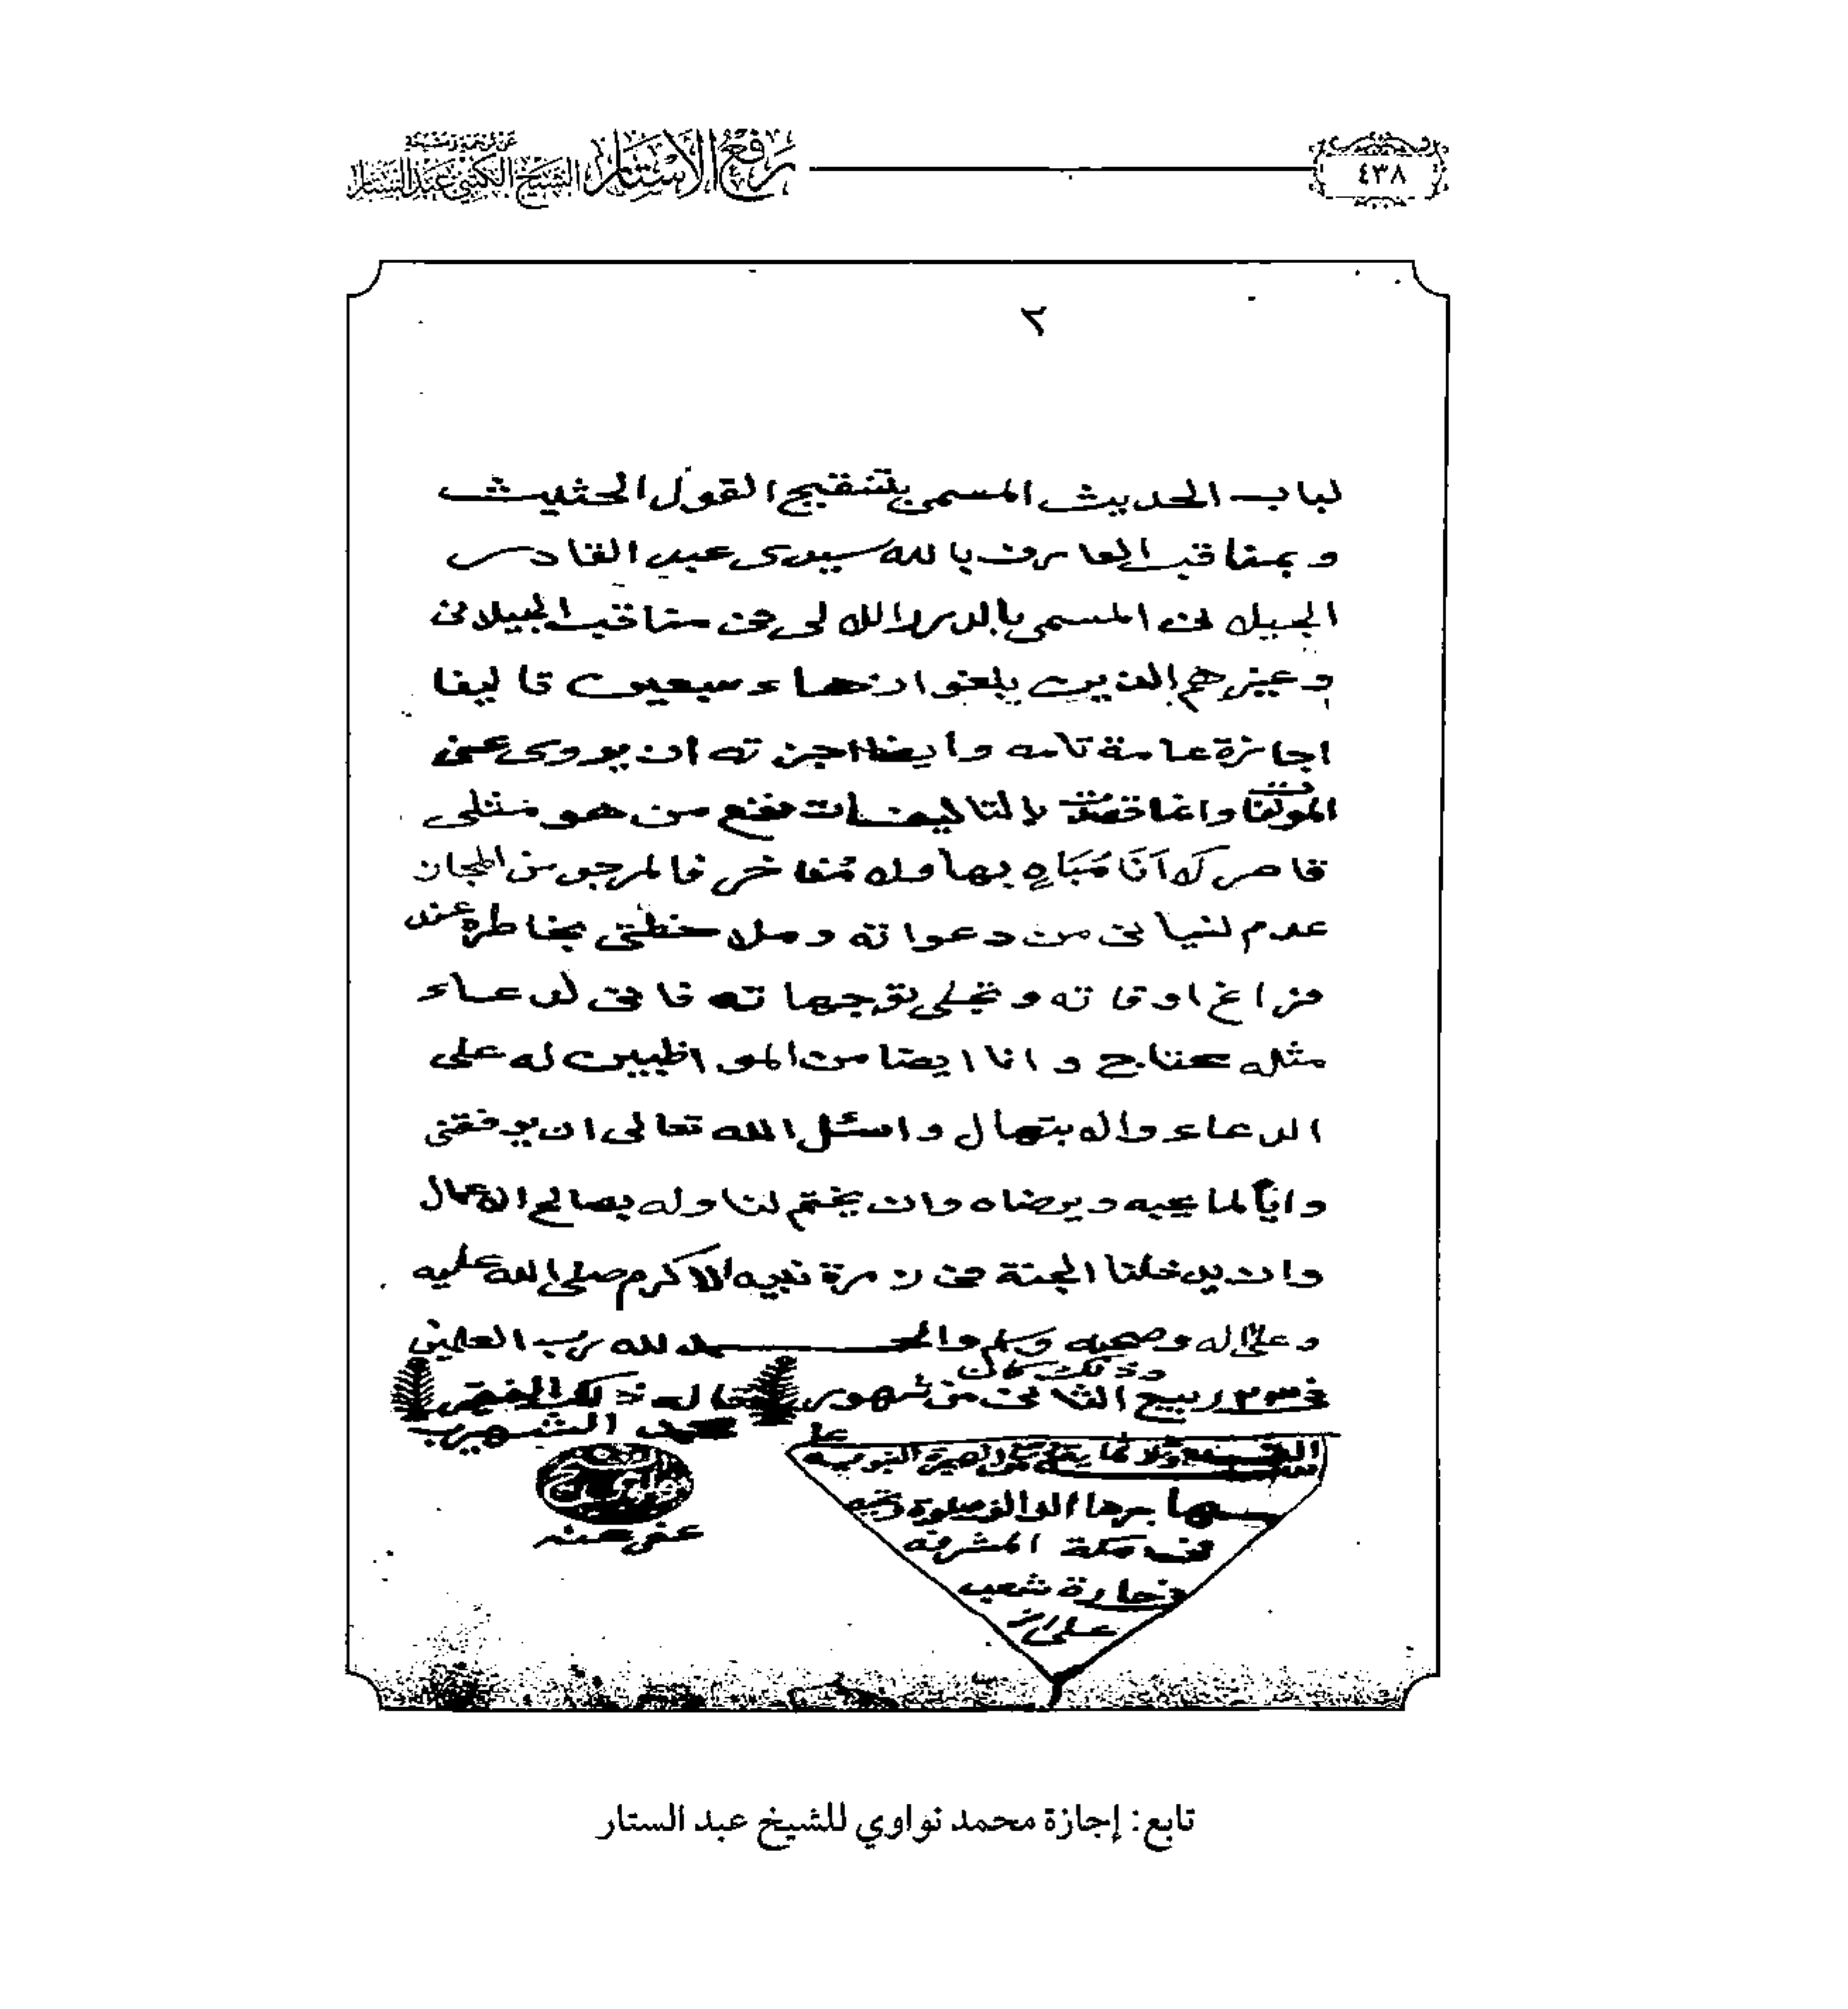 ٤٣٨
رفع الأستار
الشيخ الكتبي عبد الستار
٢
لباب الحديث المسمى بتنقيح القول الحثيث
وبمناقب العارف بالله سيدى عبد القادر
الجيلانى المسمى بالدرر اللالى فى مناقب الجيلانى
وغيرهم الذين بلغوا زهاء سبعين تاليفا
اجازة عامة تامه وايضا اجزته ان يروى عنى
المولفات وانما قصدت بالتاليفات نفع من هو مثلى
قاصر لا انا مباه بها ولا مفاخر فالمرجو من المجاز
عدم نسيانى من دعواته وملاحظتى بخاطره عند
فراغ اوقاته وتجلى توجهاته فانى لدعاء
مثله محتاج وانا ايضا من المواظبين له على
الدعاء والابتهال واسئل الله تعالى ان يوفقنى
واياه لما يحبه ويرضاه وان يختم لنا وله بصالح الاعمال
وان يدخلنا الجنة فى زمرة نبيه الاكرم صلى الله عليه
وعلى اله وصحبه وسلم والحمد لله رب العلمين
وذلك كان
ربيع الثانى من شهور
قال ذلك الفقير
محمد الشهير
النبويه
مهاجرها
فى مكة المشرفه
حارة شعب
على
عفى عنه
تابع: إجازة محمد نواوي للشيخ عبد الستار